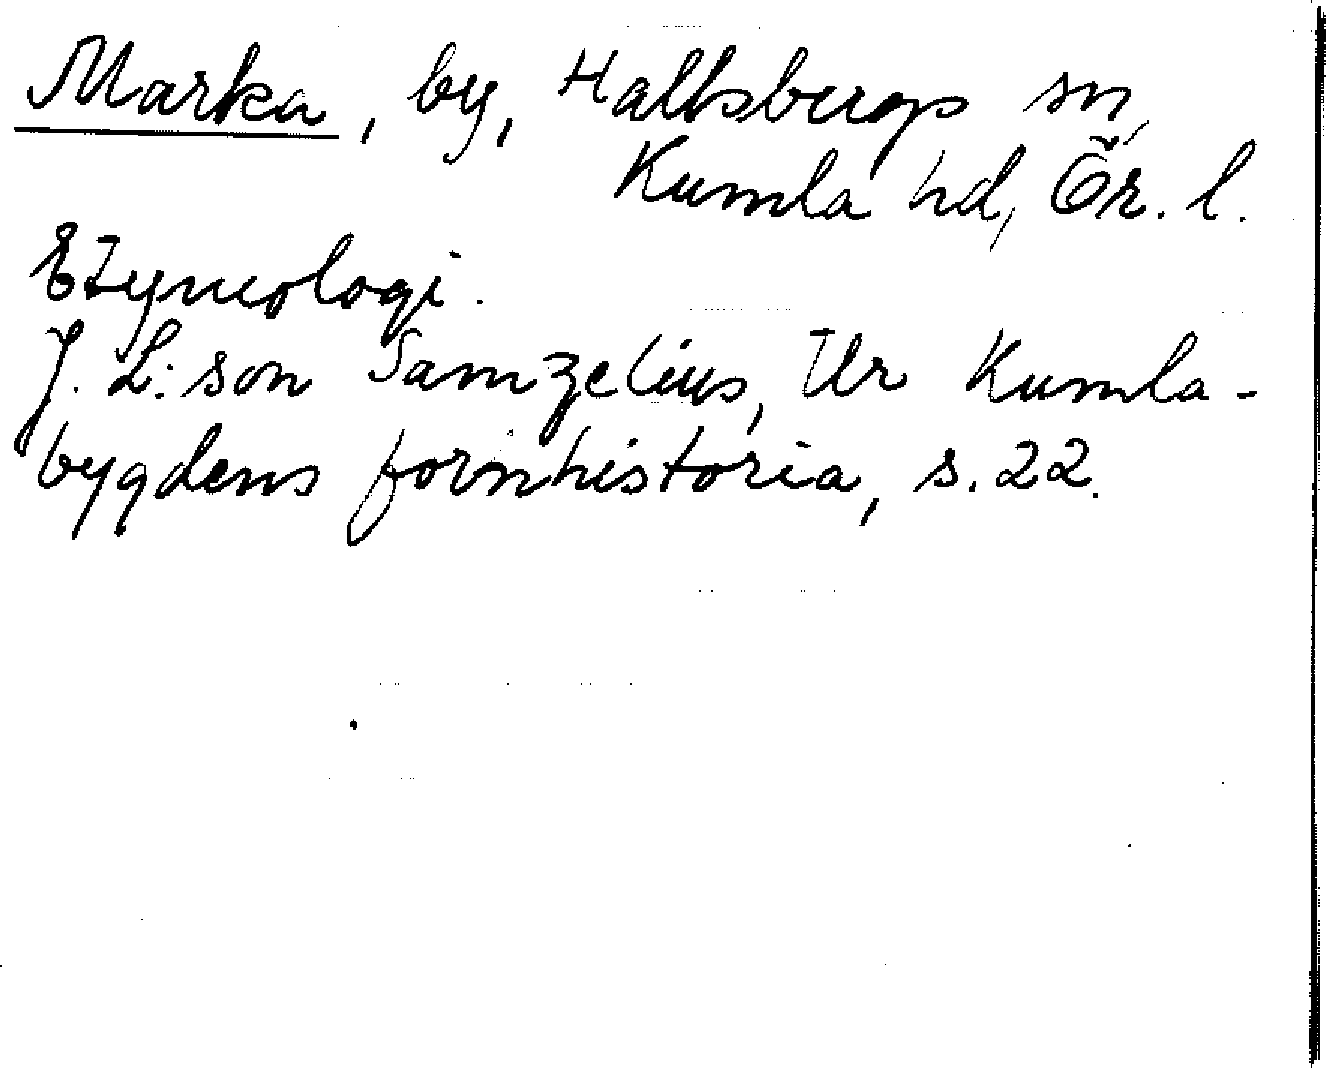 Marka, by, Hallsbergs sn,
Kumla hd, Ör. l.
Etymologi.
J. L:son Samzelius, Ur Kumla-
bygdens fornhistoria, s. 22.